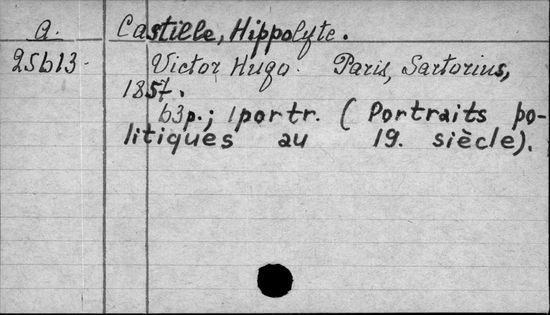 a. Castille, Hippolyte.
25613. Victor Hugo. Paris, Sartorius,
1857.
63p.; 1portr. (Portraits po-
litiques au 19. siècle).